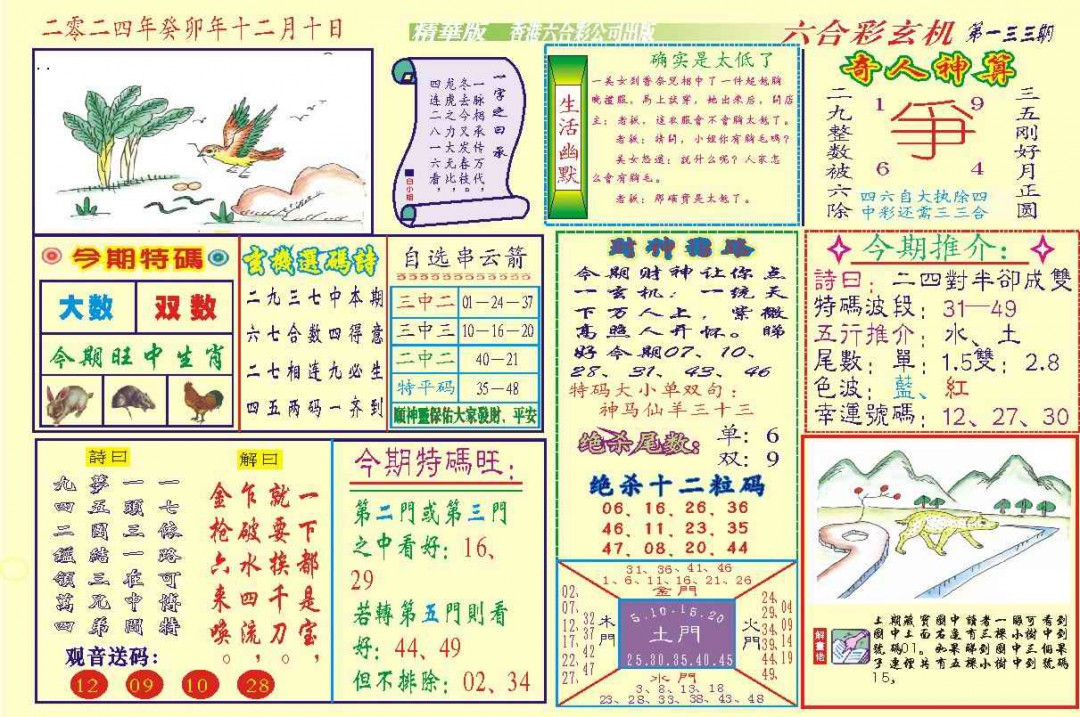 二零二四年癸卯年十二月十日
精華版
香港六合彩公司出版
六合彩玄机
第一三三期
一字之曰:承
一脉相承传万代,
冬去今又发春枝,
龙虎之力大无比,
四连二八一六看。
白小姐
生活幽默
确实是太低了
一美女到香奈儿相中了一件超低胸
晚禮服,馬上試穿,她出來后,問店
主:老板,這衣服會不會胸太低了。
老板:請問,小姐你有胸毛嗎?
美女怒道:說什么呢?人家怎
么會有胸毛。
老板:那確實是太低了。
奇人神算
三五刚好月正圆
二九整数被六除
1
9
爭
6
4
四六自大执除四
中彩还需三三合
今期特碼
大数
双数
今期旺中生肖
玄機選碼詩
二九三七中本期
六七合数四得意
二七相连九必生
四五两码一齐到
自选串云箭
三中二 01—24—37
三中三 10—16—20
二中二 40—21
特平码 35—48
願神靈保佑大家發財、平安
財神密路
今期财神让你点
一玄机:一统天
下万人上,紫微
高照人开怀。睇
好今期07、10、
28、31、43、46
特码大小单双句:
神马仙羊三十三
绝杀尾数:
单:6
双:9
绝杀十二粒码
06、16、26、36
46、11、23、35
47、08、20、44
今期推介:
詩曰:二四對半卻成雙
特碼波段:31—49
五行推介:水、土
尾數:單:1.5雙:2.8
色波:藍、紅
幸運號碼:12、27、30
詩曰
一七依路可博特
一頭三一在中間
夢五國結三兄弟
九四二鎰領萬四
解曰
一下都是宝,
就要挨千刀。
乍破水四流,
金枪六来唤。
观音送码:
12 09 10 28
今期特碼旺:
第二門或第三門
之中看好:16、
29
若轉第五門則看
好:44、49
但不排除:02、34
31、36、41、46
1、6、11、16、21、26
金門
02、07、12、17、22、27、
32、37、42、47
木門
5.10.15.20
土門
25.30.35.40.45
火門
24、29、34、39、44、49
04、09、14、19
水門
3、8、13、18
23、28、33、38、43、48
解畫佬
上期藏寶圖中讀者一睇可看到
圖中上面右邊有三棵小樹中到
號碼01。如果睇到圖中三個果
子連徑共有五棵小樹中到號碼
15,